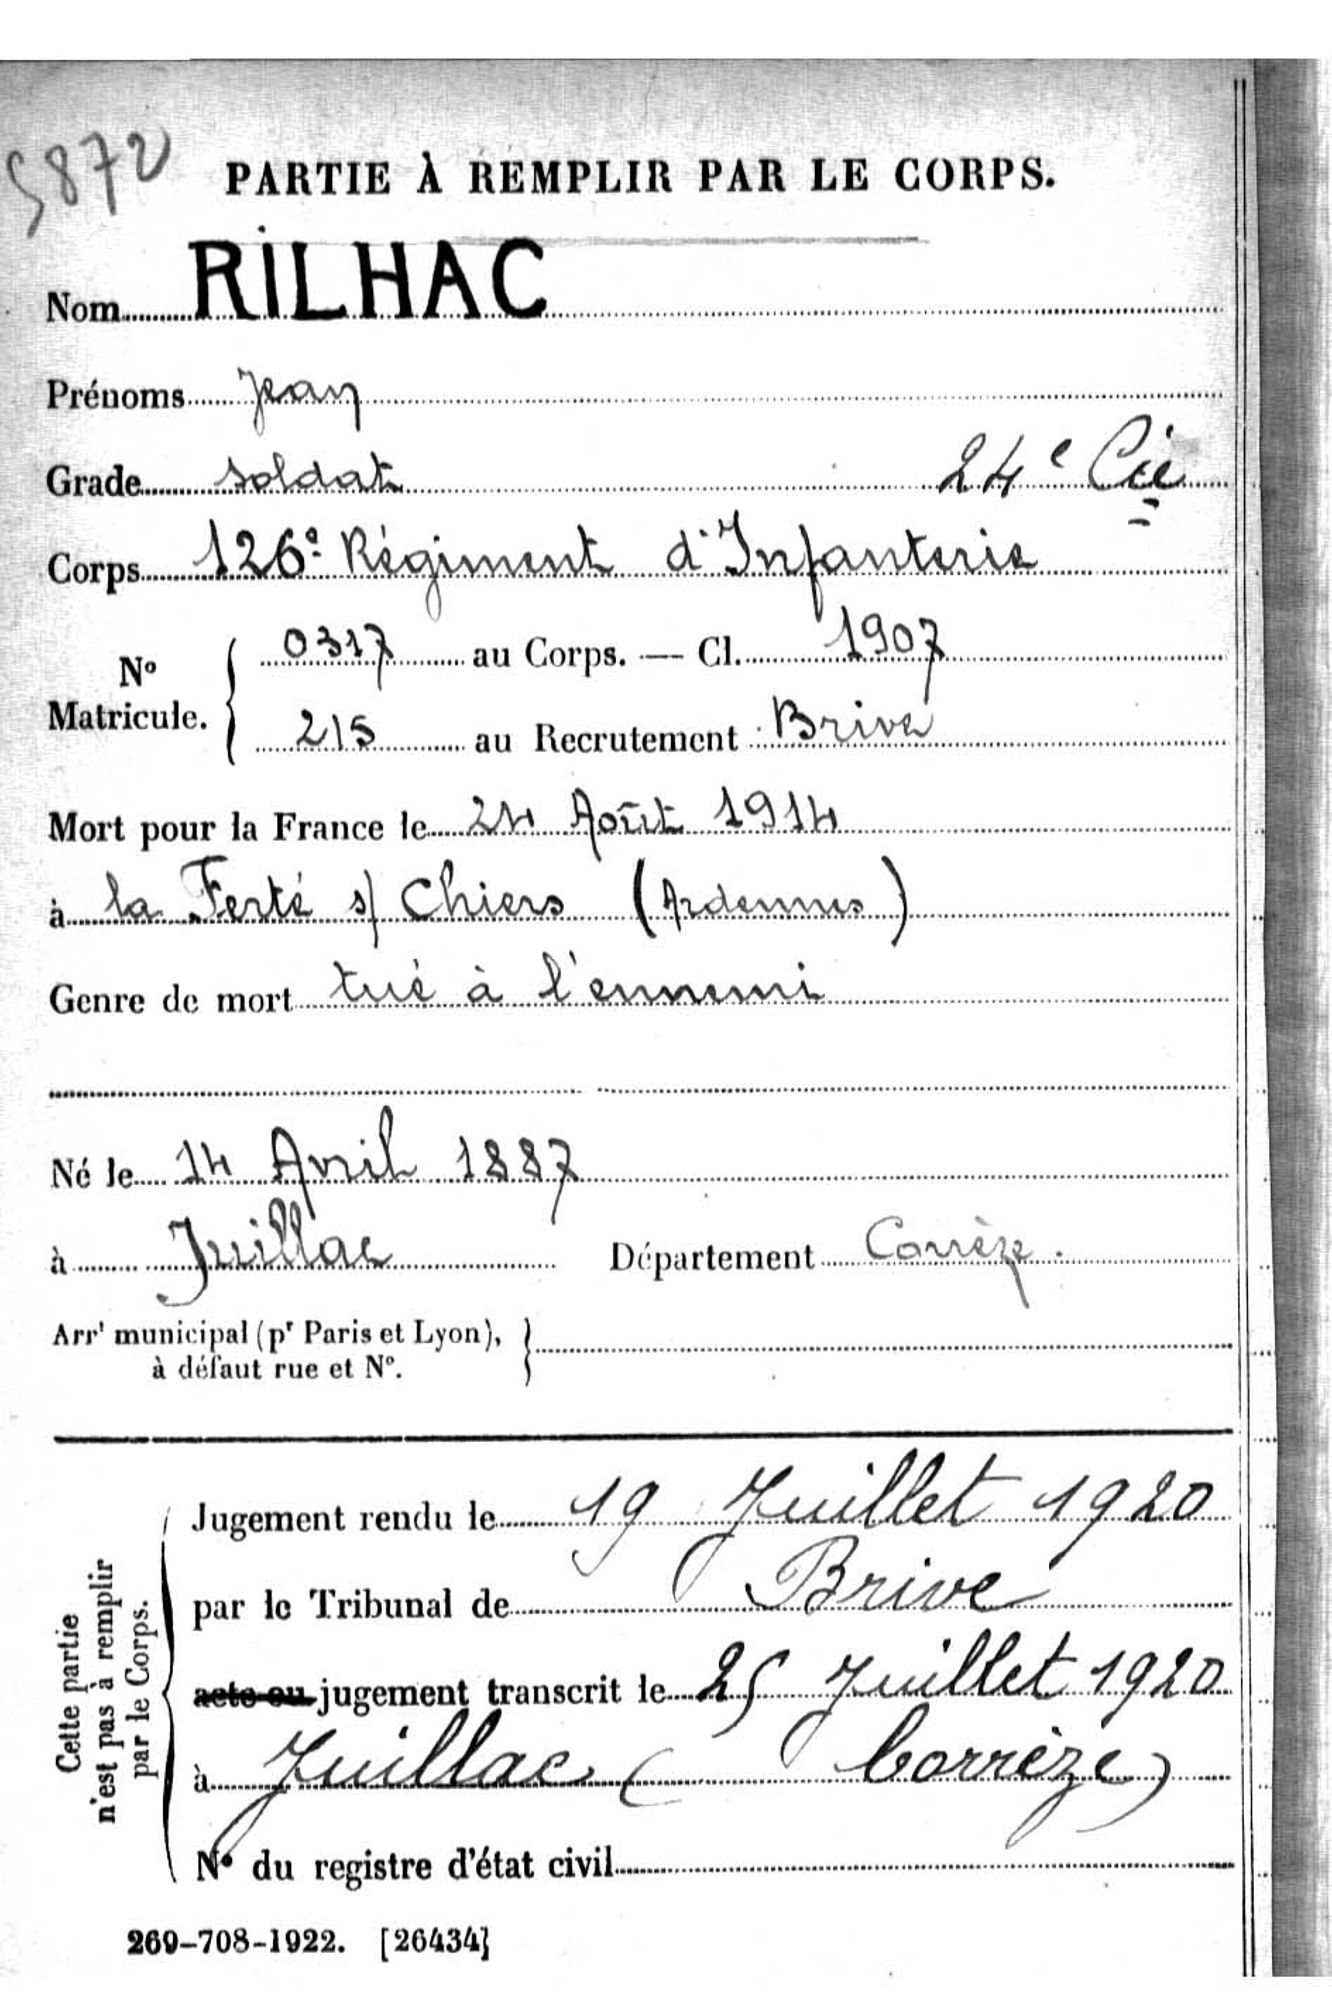 5872
PARTIE À REMPLIR PAR LE CORPS.
Nom RILHAC
Prénoms Jean
Grade soldat 24e Cie
Corps 126e Régiment d'Infanterie
No Matricule. { 0317 au Corps. — Cl. 1907
215 au Recrutement Brive
Mort pour la France le 24 Août 1914
à la Ferté s/ Chiers (Ardennes)
Genre de mort tué à l'ennemi
Né le 14 Avril 1887
à Juillac Département Corrèze.
Arrt municipal (pr Paris et Lyon), }
à défaut rue et No.
Cette partie
n'est pas à remplir
par le Corps.
Jugement rendu le 19 Juillet 1920
par le Tribunal de Brive
acte ou jugement transcrit le 25 Juillet 1920
à Juillac (Corrèze)
No du registre d'état civil
269-708-1922. [26434]